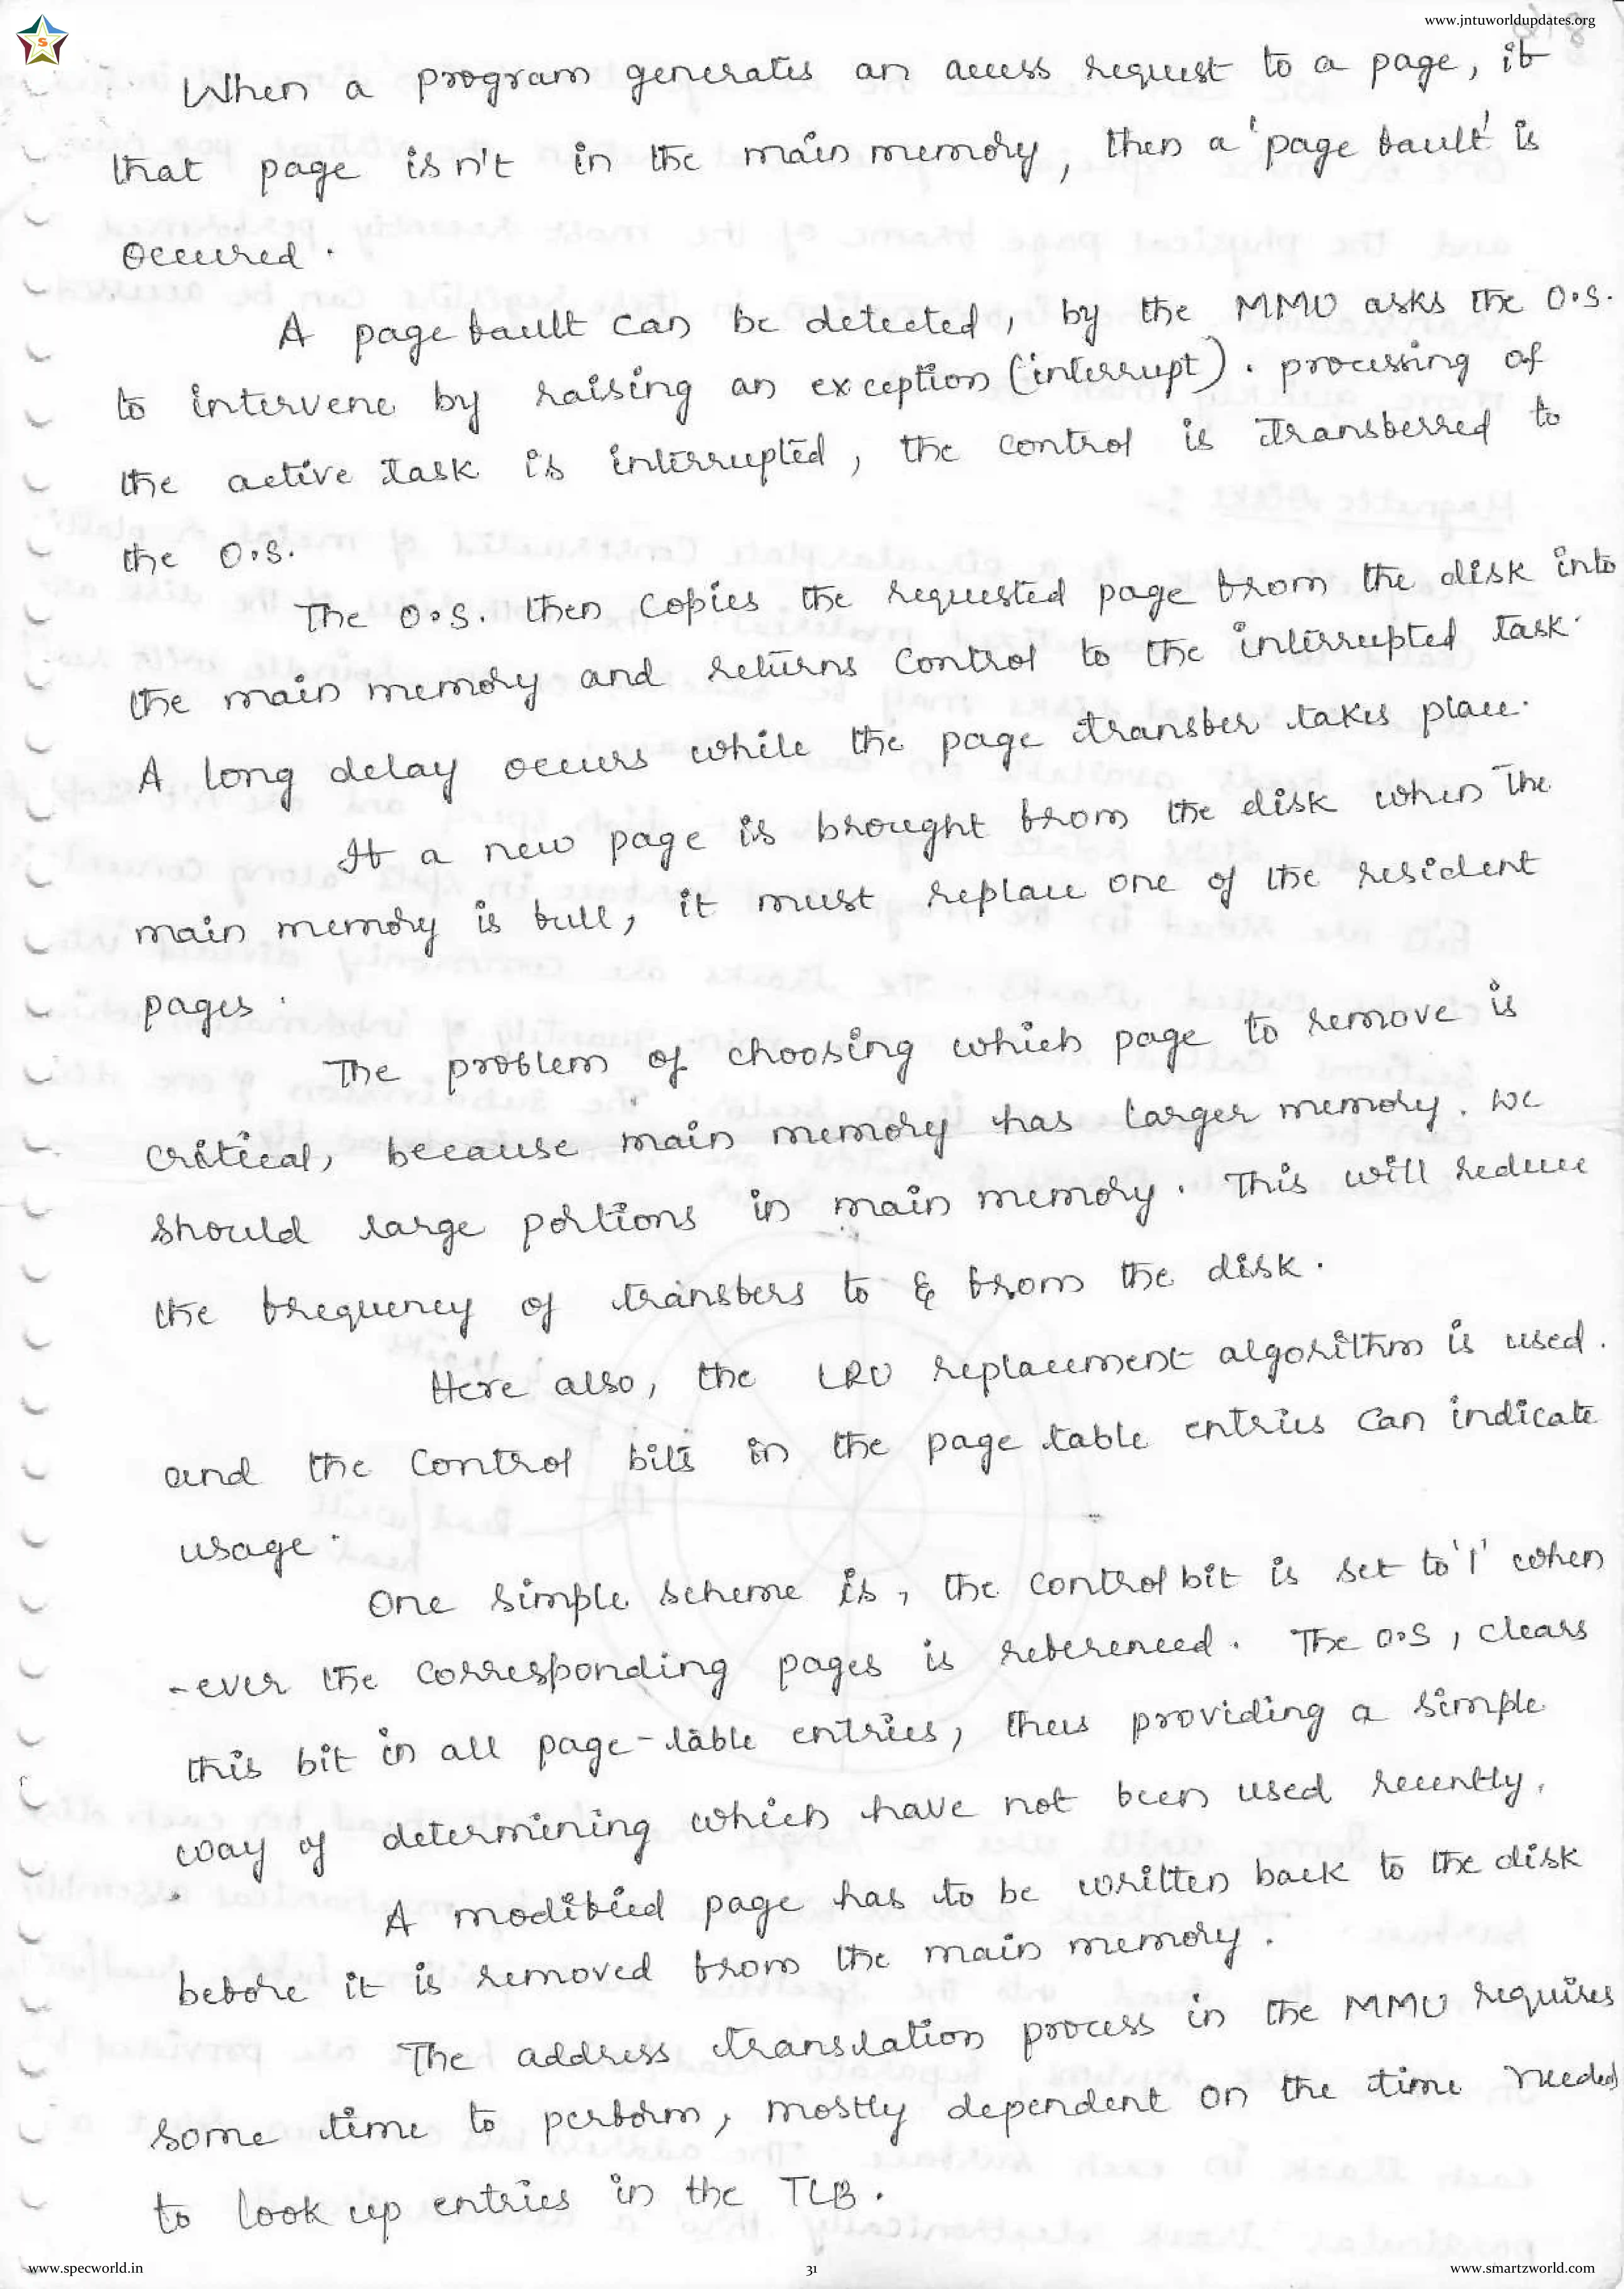 www.jntuworldupdates.org
S
When a program generates an access request to a page, if
that page isn't in the main memory, then a 'page fault' is
Occured.
A page fault can be detected, by the MMU asks the O.S.
to intervene by raising an exception (interrupt). processing of
the active task is interrupted, the control is transferred to
the O.S.
The O.S. then copies the requested page from the disk into
the main memory and returns control to the interrupted task.
A long delay occurs while the page transfer takes place.
If a new page is brought from the disk when the
main memory is full, it must replace one of the resident
pages.
The problem of choosing which page to remove is
critical, because main memory has larger memory. we
should large portions in main memory. This will reduce
the frequency of transfers to & from the disk.
Here also, the LRU replacement algorithm is used.
and the control bits in the page table entries can indicate
usage.
One simple scheme is, the control bit is set to '1' when
-ever the corresponding pages is referenced. The O.S, clears
this bit in all page-table entries, thus providing a simple
way of determining which have not been used recently.
A modified page has to be written back to the disk
before it is removed from the main memory.
The address translation process in the MMU requires
some time to perform, mostly dependent on the time needed
to look up entries in the TLB.
www.specworld.in
31
www.smartzworld.com